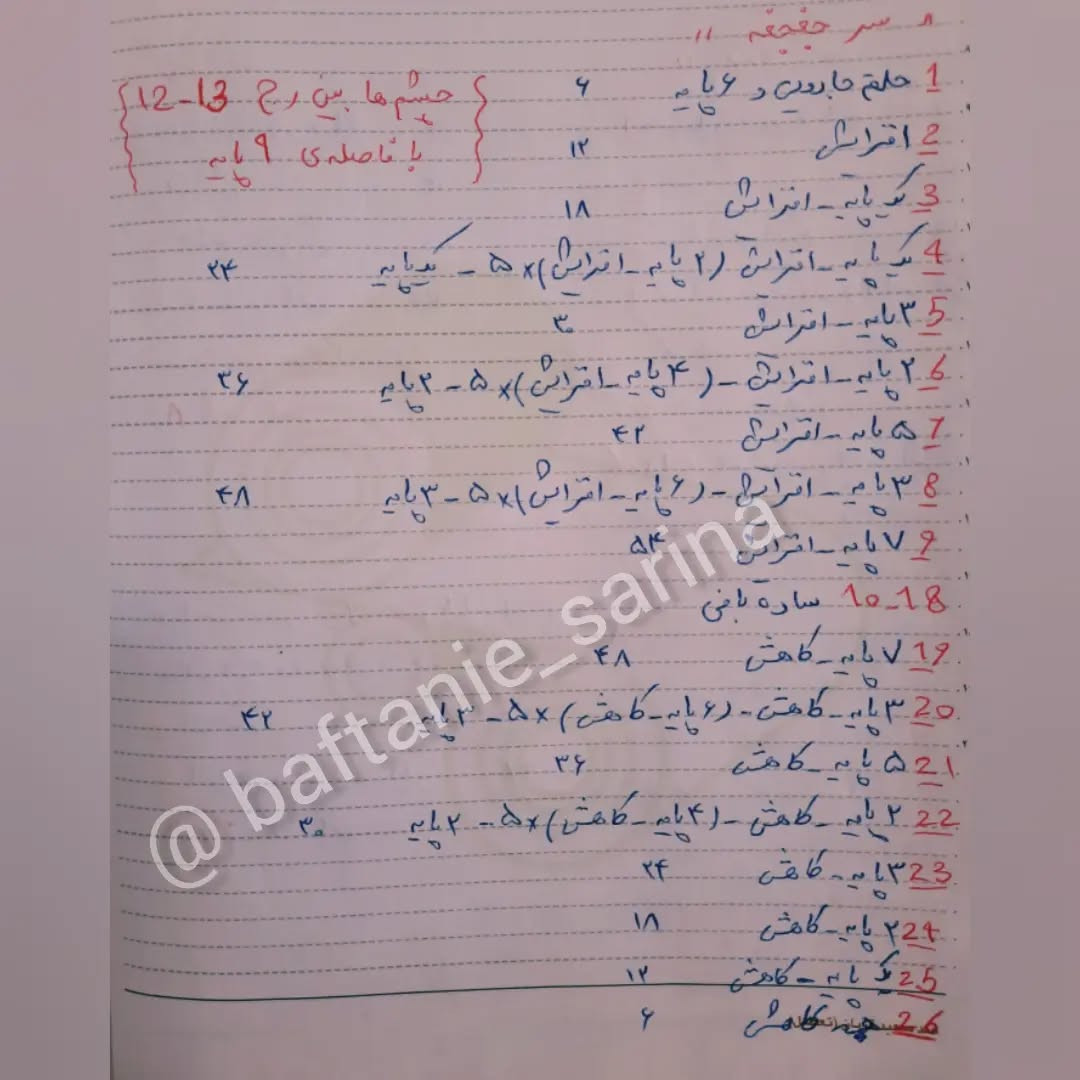 سر جغجغه "
1 حلقه جادویی و ۶ پایه ۶
{ چشم ها بین رج 13-12
با فاصله‌ی ۹ پایه }
2 افزایش ۱۲
3 یک پایه - افزایش ۱۸
4 یک پایه - افزایش (۲ پایه - افزایش)×۵ - یک پایه ۲۴
5 ۳ پایه - افزایش ۳۰
6 ۲ پایه - افزایش - (۴ پایه - افزایش)×۵ - ۲ پایه ۳۶
7 ۵ پایه - افزایش ۴۲
8 ۳ پایه - افزایش - (۶ پایه - افزایش)×۵ - ۳ پایه ۴۸
9 ۷ پایه - افزایش ۵۴
10-18 ساده بافی
19 ۷ پایه - کاهش ۴۸
20 ۳ پایه - کاهش - (۶ پایه - کاهش)×۵ - ۳ پایه ۴۲
21 ۵ پایه - کاهش ۳۶
22 ۲ پایه - کاهش - (۴ پایه - کاهش)×۵ - ۲ پایه ۳۰
23 ۳ پایه - کاهش ۲۴
24 ۲ پایه - کاهش ۱۸
25 یک پایه - کاهش ۱۲
26 کاهش ۶
@baftanie_sarina